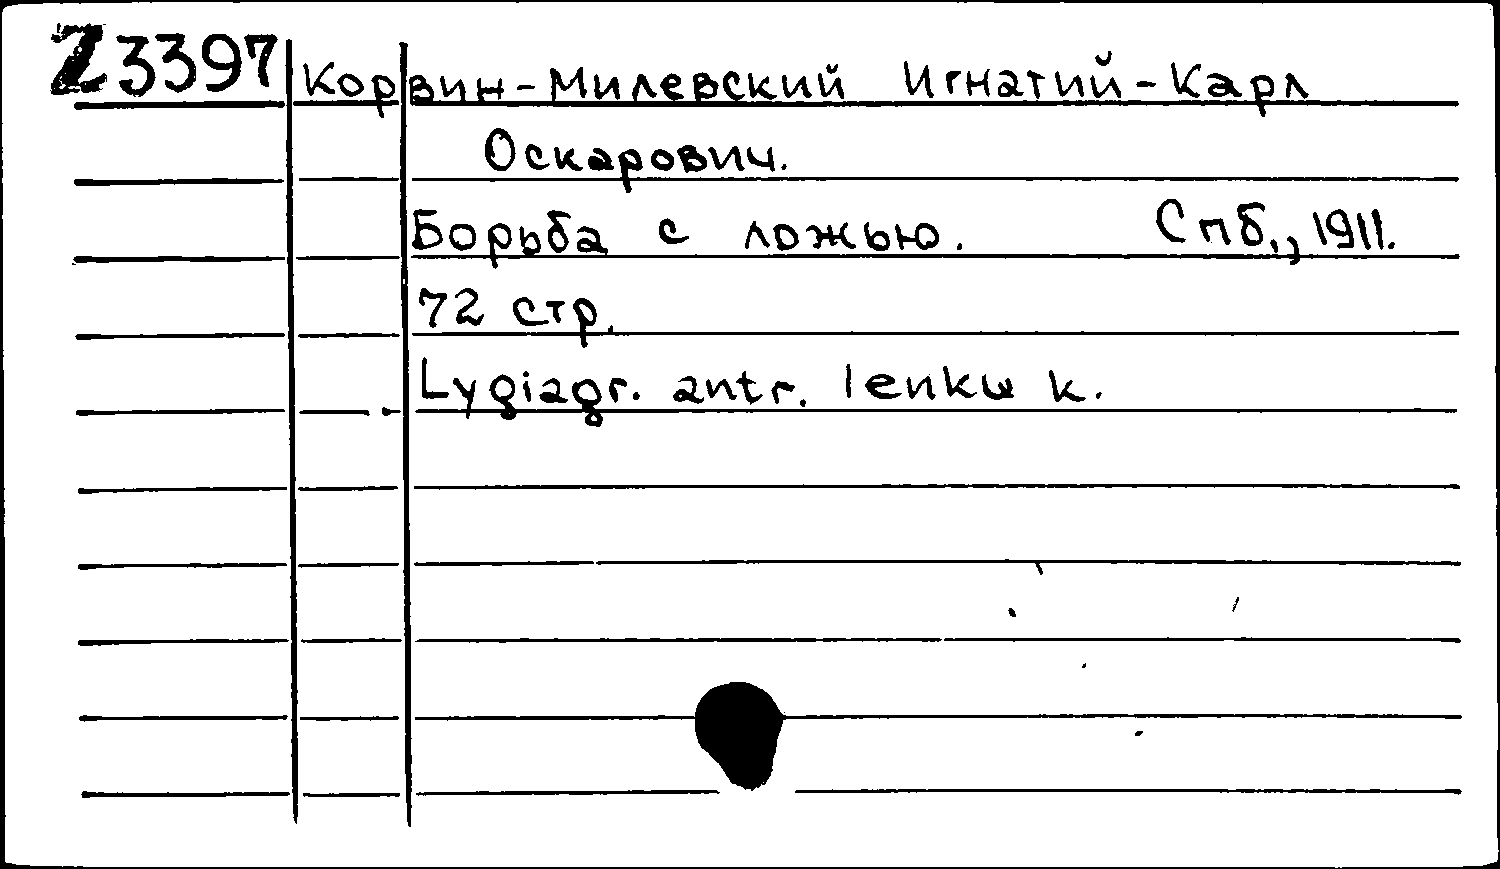 Z3397 Корвин-Милевский Игнатий-Карл
Оскарович.
Борьба с ложью. Спб., 1911.
72 стр.
Lygiagr. antr. lenkų k.